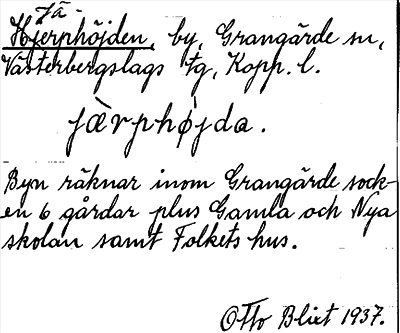 Jä-
Hjerphöjden, by, Grangärde sn,
Västerbergslags tg, Kopp. l.
jærphøjda.
Byn räknar inom Grangärde sock-
en 6 gårdar plus Gamla och Nya
skolan samt Folkets hus.
Otto Blixt 1937.